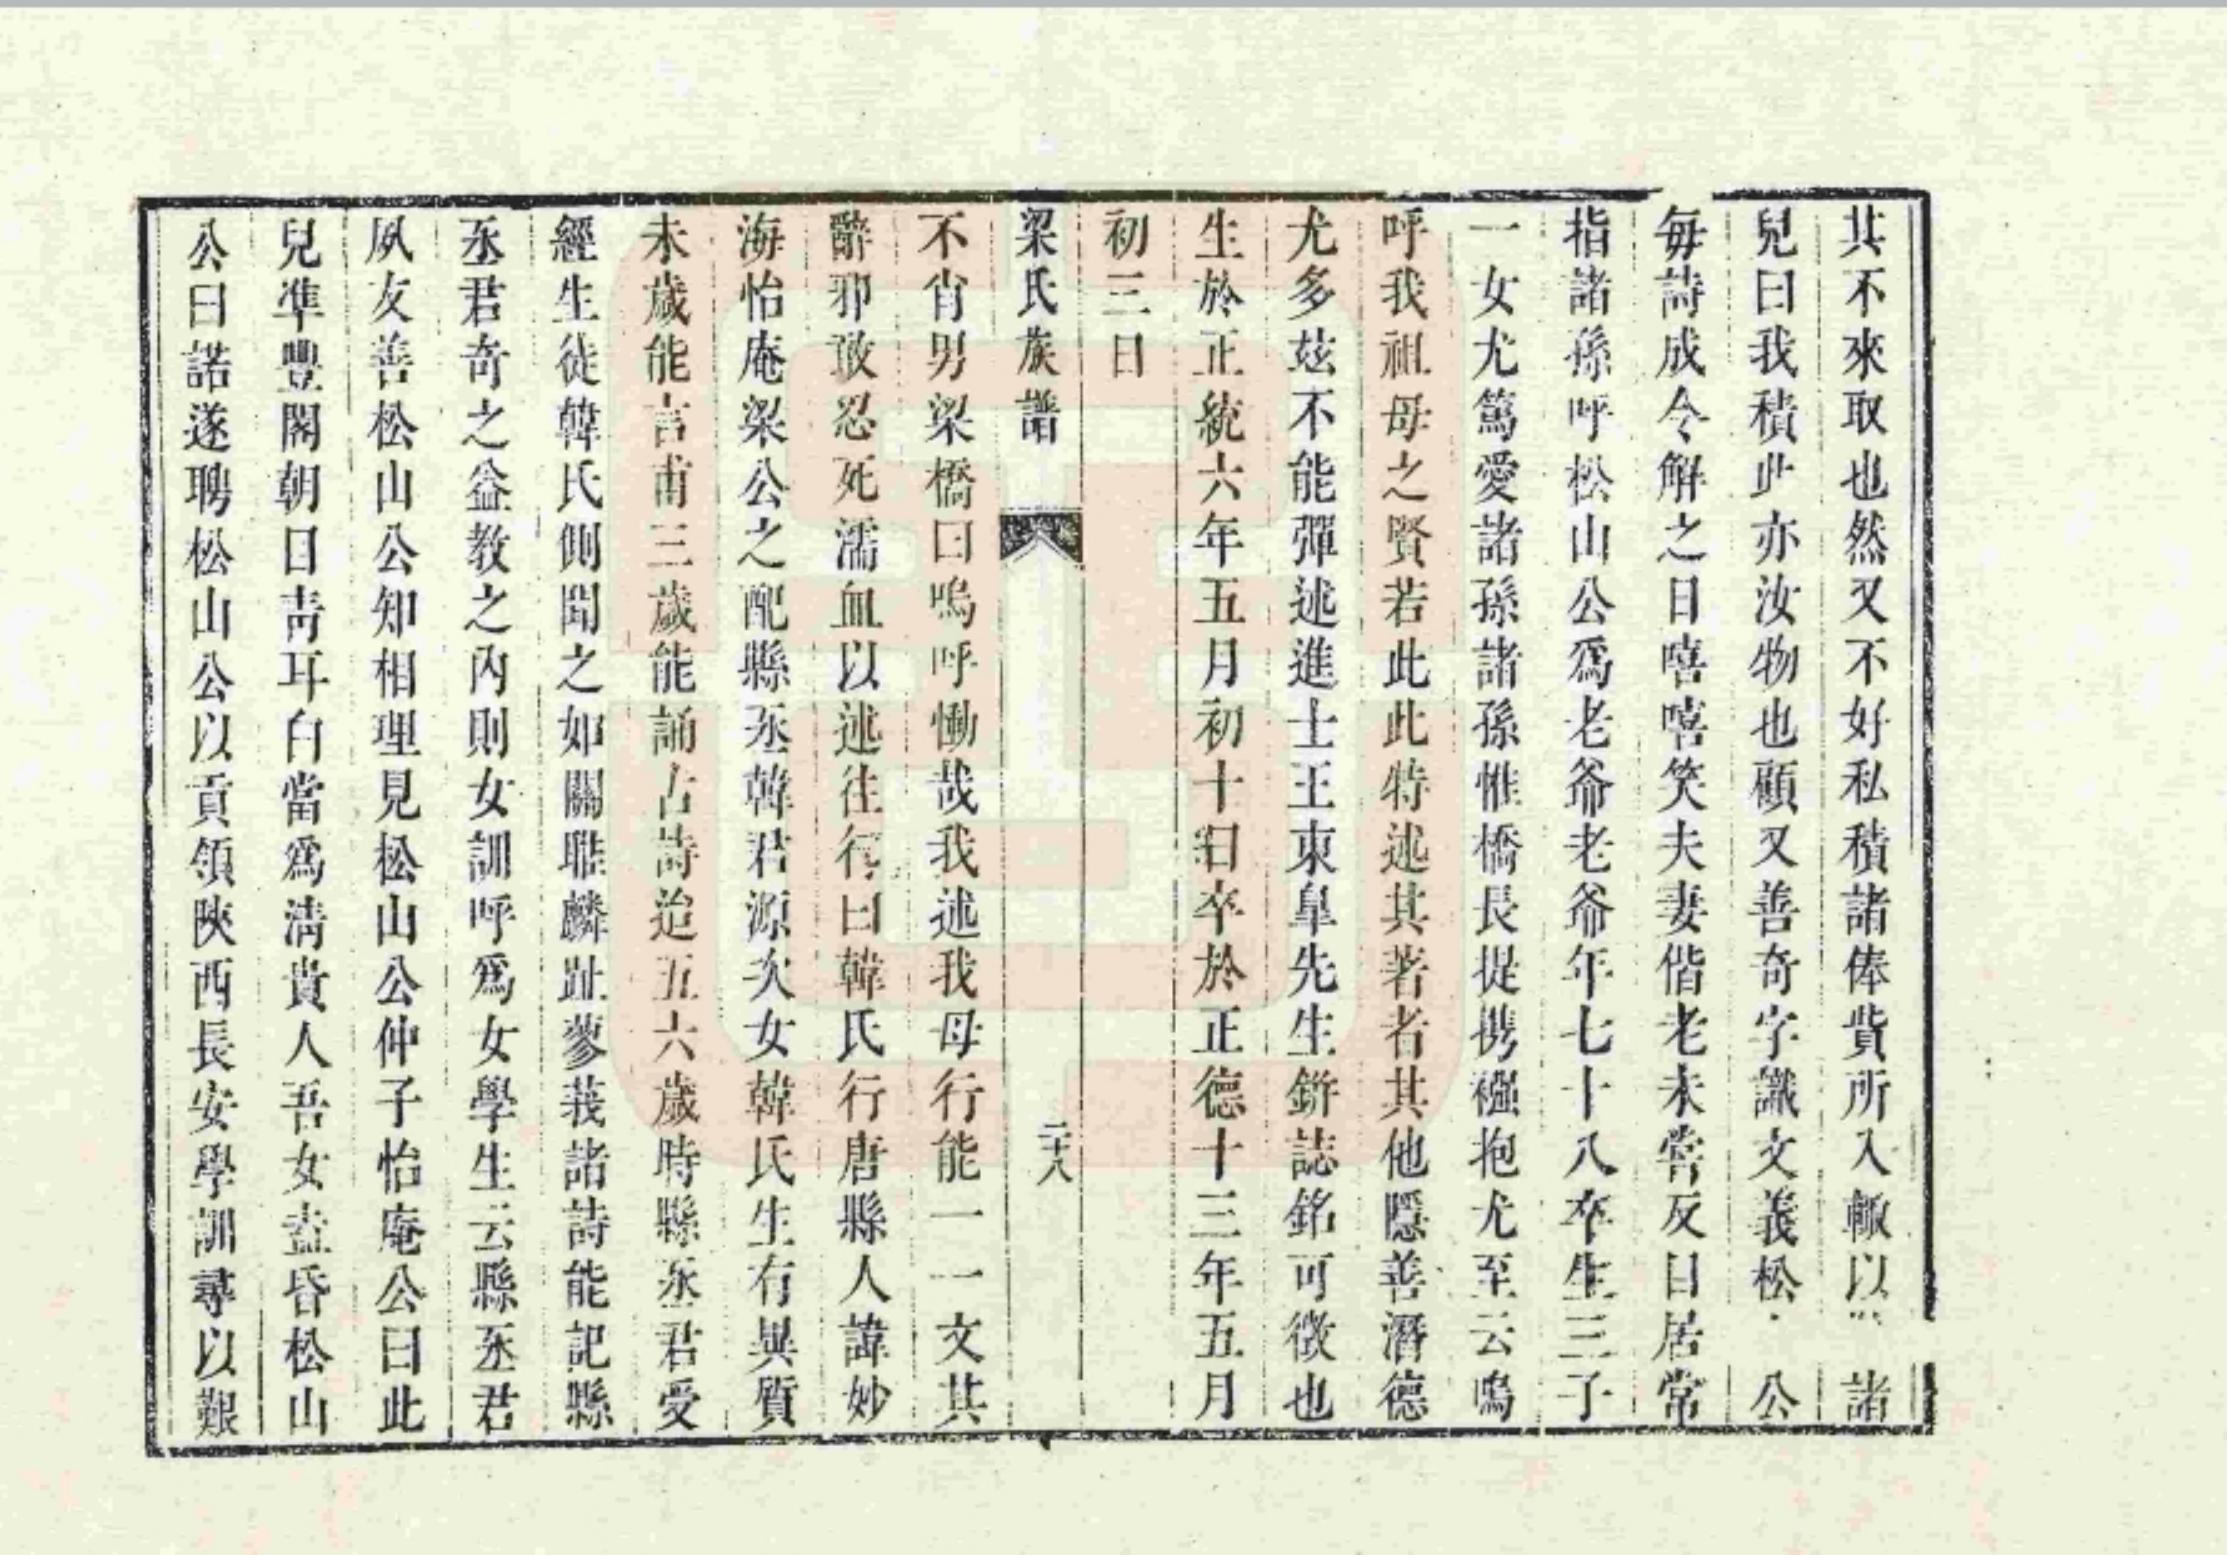 其不來取也然又不好私積諸俸貲所入輙以 諸
兒曰我積此亦汝物也顧又善奇字識文義松 公
每詩成令解之日嘻嘻笑夫妻偕老未嘗反目居常
指諸孫呼松山公爲老爺老爺年七十八卒生三子
一女尤篤愛諸孫諸孫惟橋長提携襁抱尤至云嗚
呼我祖母之賢若此此特述其著者其他隱善潛德
尤多玆不能殫述進士王東皐先生銒誌銘可徵也
生於正統六年五月初十日卒於正德十三年五月
初三日
梁氏族譜 二十八
不肖男梁橋曰嗚呼慟哉我述我母行能一一文其
辭邪敢忍死濡血以述往行曰韓氏行唐縣人諱妙
海怡庵梁公之配縣丞韓君源次女韓氏生有異質
未歲能言甫三歲能誦古詩迨五六歲時縣丞君受
經生徒韓氏側聞之如關雎麟趾蓼莪諸詩能記縣
丞君奇之益教之內則女訓呼爲女學生云縣丞君
夙友善松山公知相理見松山公仲子怡庵公曰此
兒準豐閣朝日靑耳白當爲淸貴人吾女盍昏松山
公曰諾遂聘松山公以貢領陝西長安學訓尋以艱